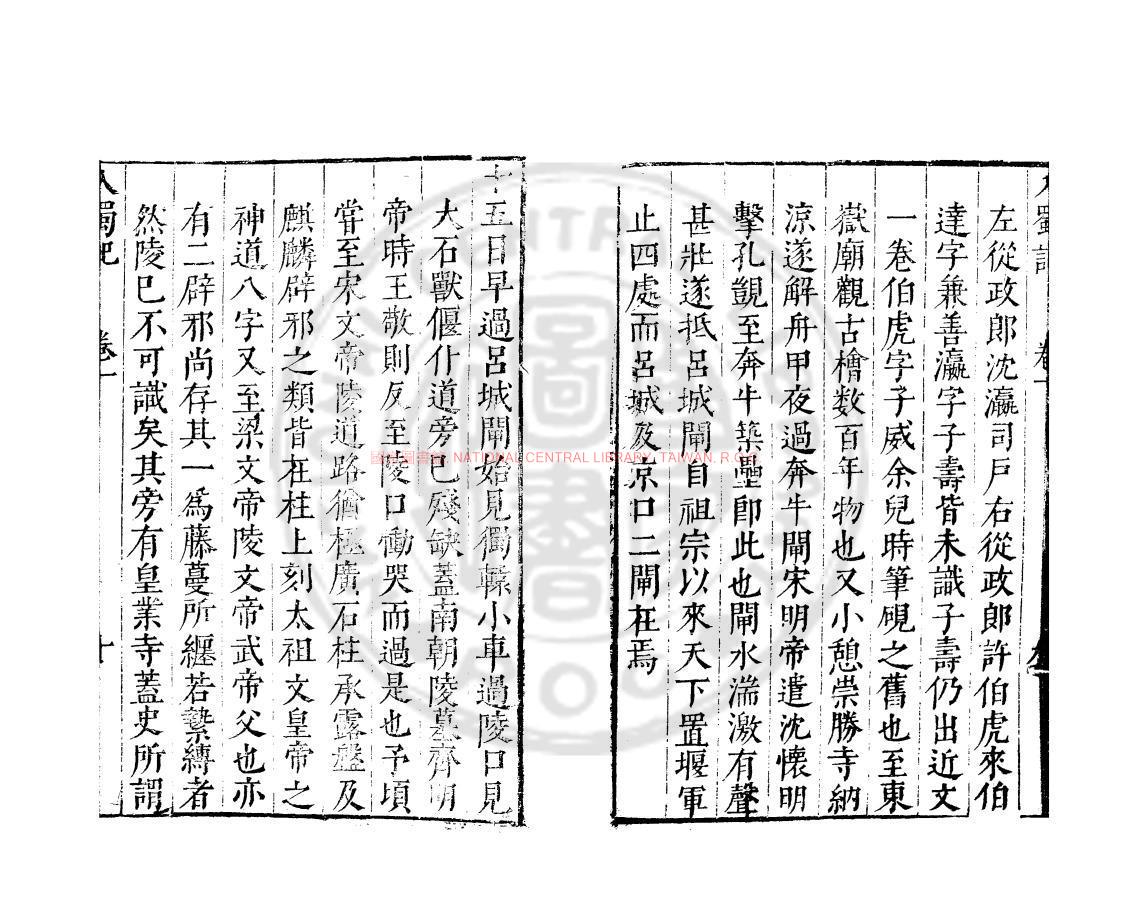 左從政郎沈瀛司戶右從政郎許伯虎來伯
達字兼善瀛字子壽皆未識子壽仍出近文
一卷伯虎字子威余兒時筆硯之舊也至東
嶽廟觀古檜數百年物也又小憩崇勝寺納
涼遂解舟甲夜過奔牛閘宋明帝遣沈懷明
擊孔覬至奔牛築壘卽此也閘水湍激有聲
甚壯遂抵呂城閘自祖宗以來天下置堰軍
止四處而呂城及京口二閘在焉
十五日早過呂城閘始見獨轅小車過陵口見
大石獸偃仆道旁已殘缺蓋南朝陵墓齊明
帝時王敬則反至陵口慟哭而過是也予頃
嘗至宋文帝陵道路猶極廣石柱承露盤及
麒麟辟邪之類皆在柱上刻太祖文皇帝之
神道八字又至梁文帝陵文帝武帝父也亦
有二辟邪尚存其一爲藤蔓所纏若縶縛者
然陵已不可識矣其旁有皇業寺蓋史所謂
入蜀記 卷一 十
NATIONAL CENTRAL LIBRARY, TAIWAN, R.O.C.